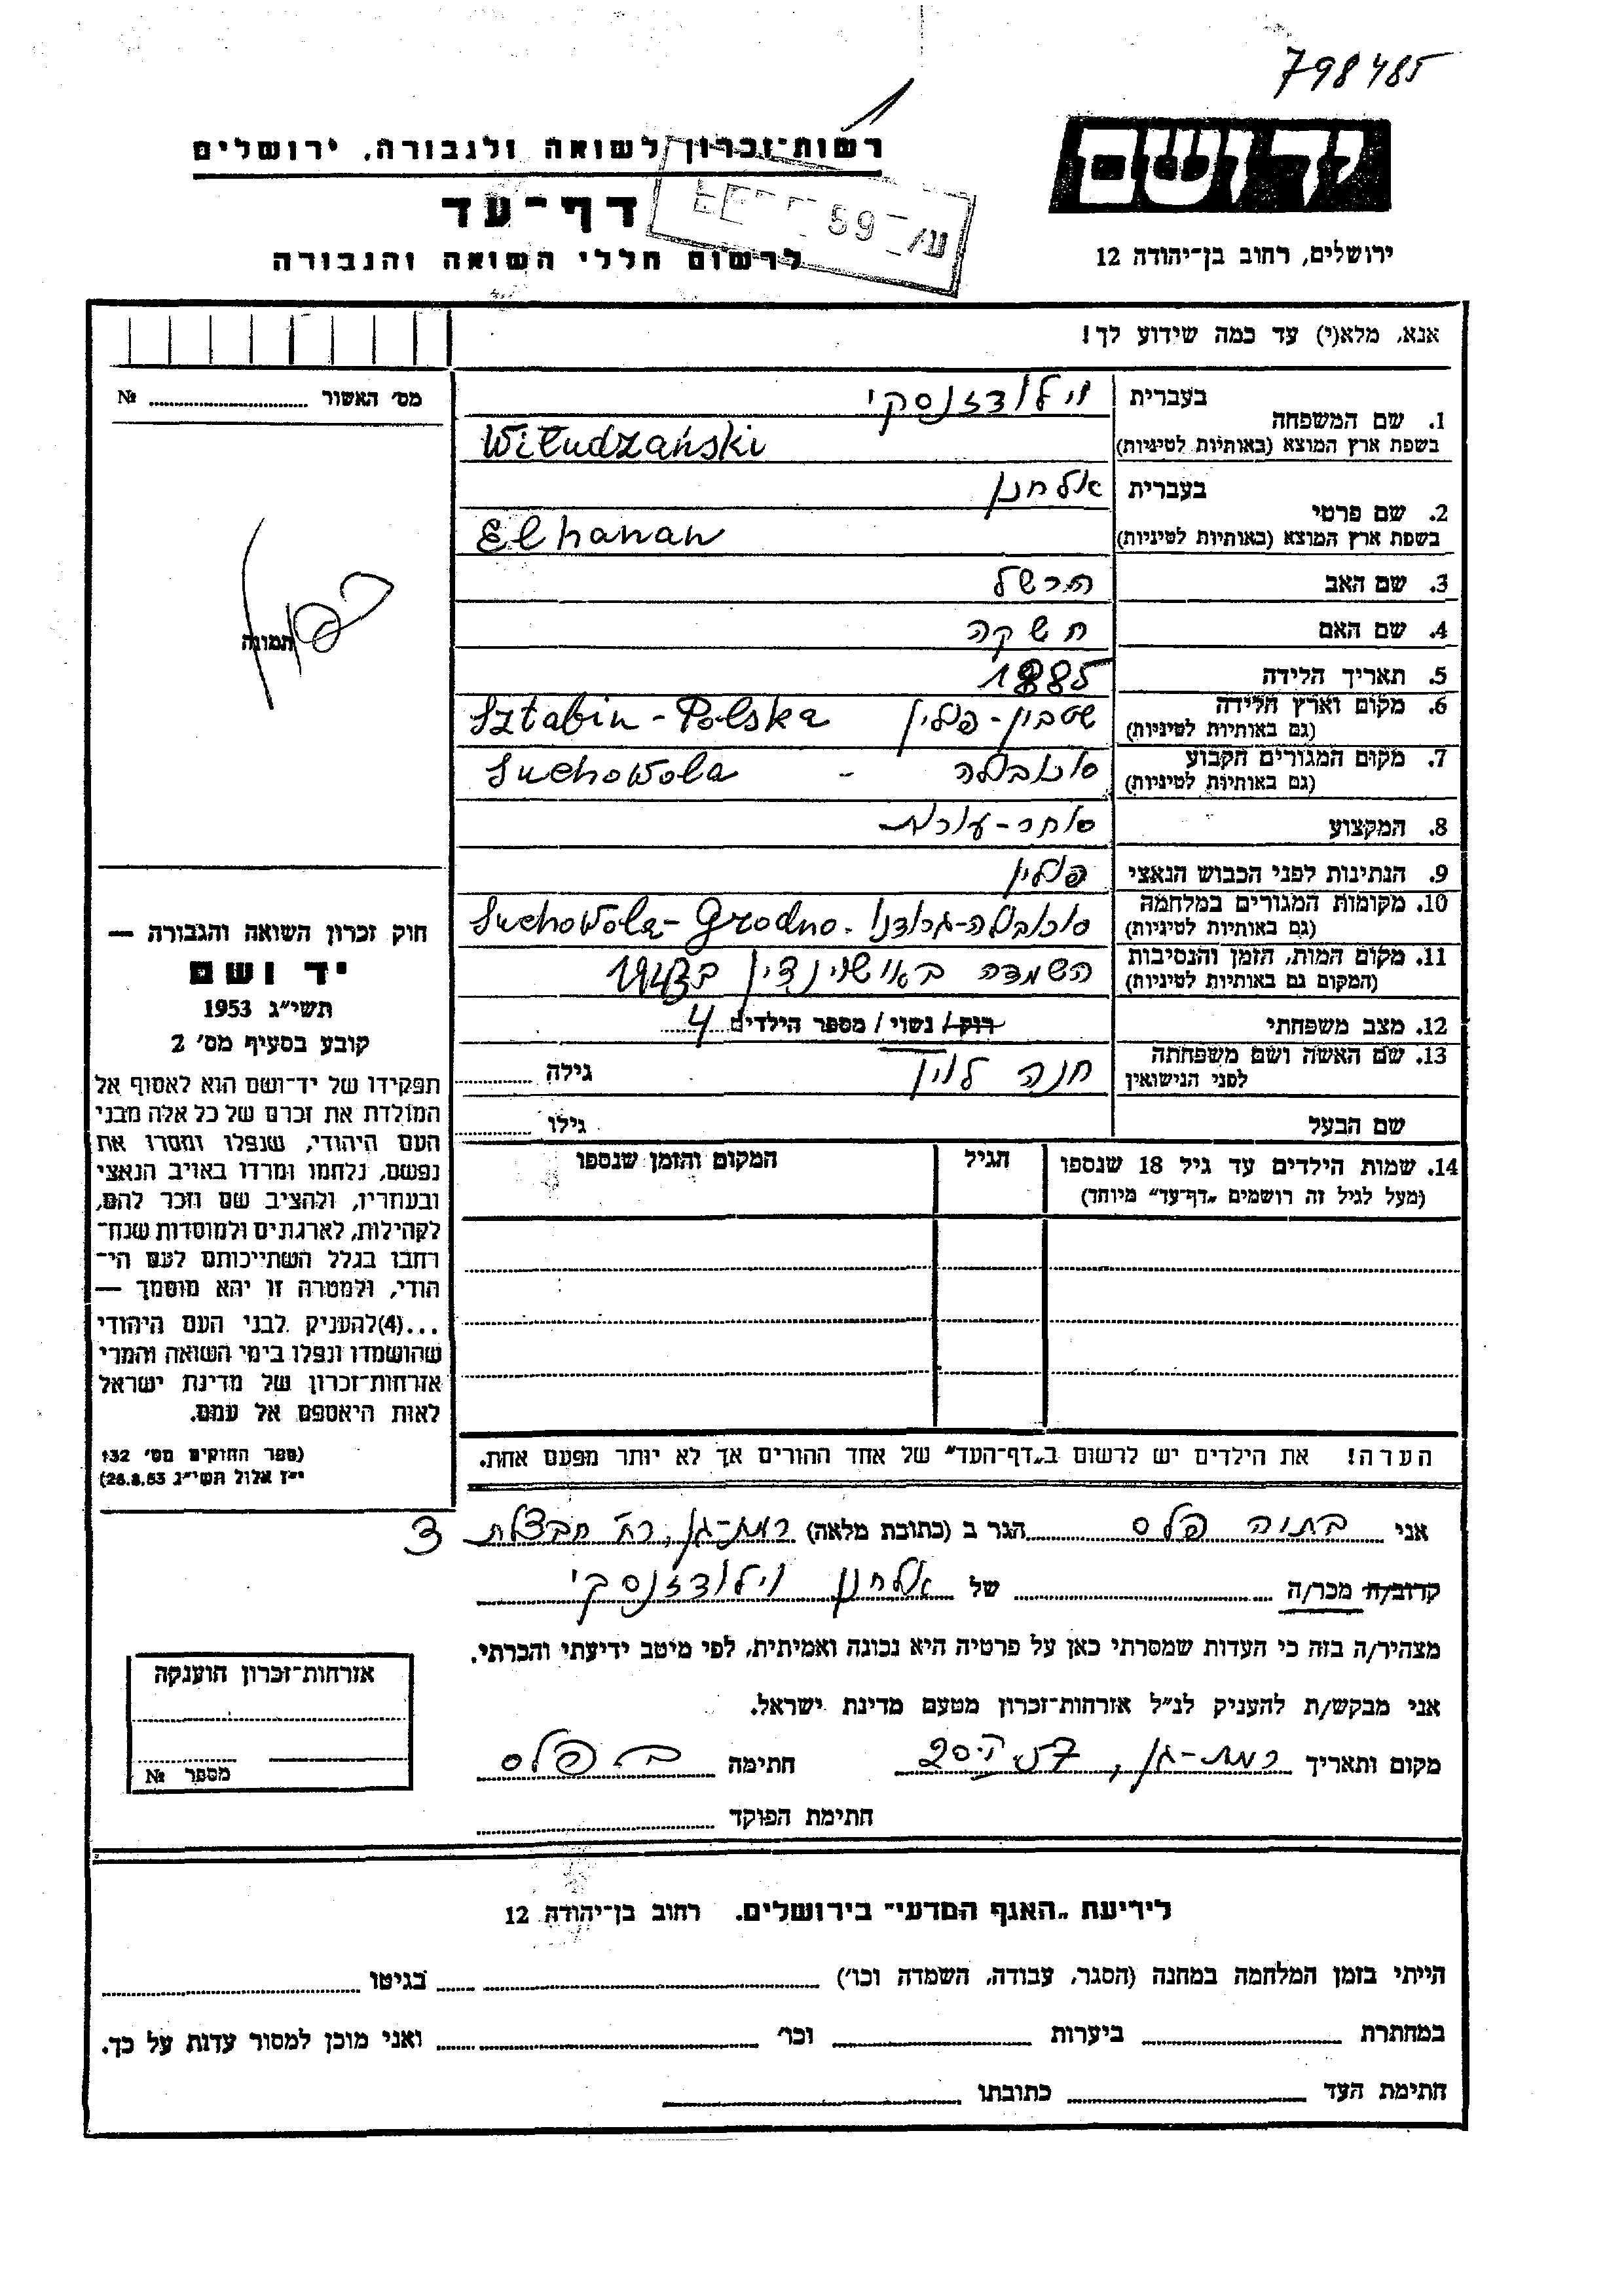 798485
רשות־זכרון לשואה ולגבורה, ירושלים
יד ושם
דף־עד
59
לרשום חללי השואה והגבורה
ירושלים, רחוב בן־יהודה 12
אנא, מלא(י) עד כמה שידוע לך!
מס׳ האשור № 
1. שם המשפחה
בעברית וילודזנסקי
בשפת ארץ המוצא (באותיות לטיניות) Wiłudzański
2. שם פרטי
בעברית אלחנן
בשפת ארץ המוצא (באותיות לטיניות) Elhanan
3. שם האב הרשל
4. שם האם חשקה
תמונה
5. תאריך הלידה 1885
6. מקום וארץ הלידה שטבין - פולין Sztabin - Polska
(גם באותיות לטיניות)
7. מקום המגורים הקבוע סוכבולה - Suchowola
(גם באותיות לטיניות)
8. המקצוע סוחר - עורות
9. הנתינות לפני הכבוש הנאצי פולין
10. מקומות המגורים במלחמה סוכבולה - גרודנו. Suchowola - Grodno
(גם באותיות לטיניות)
11. מקום המות, הזמן והנסיבות השמדה באושוינצין ב 1943
(המקום גם באותיות לטיניות)
12. מצב משפחתי רוק/ נשוי/ מספר הילדים 4
13. שם האשה ושם משפחתה חנה לוין גילה
לפני הנישואין
שם הבעל גילו
14. שמות הילדים עד גיל 18 שנספו הגיל המקום והזמן שנספו
(מעל לגיל זה רושמים „דף־עד״ מיוחד)
הערה! את הילדים יש לרשום ב„דף־העד״ של אחד ההורים אך לא יותר מפעם אחת.
חוק זכרון השואה והגבורה —
יד ושם
תשי״ג 1953
קובע בסעיף מס׳ 2
תפקידו של יד־ושם הוא לאסוף אל
המולדת את זכרם של כל אלה מבני
העם היהודי, שנפלו ומסרו את
נפשם, נלחמו ומרדו באויב הנאצי
ובעוזריו, ולהציב שם וזכר להם,
לקהילות, לארגונים ולמוסדות שנח־
רבו בגלל השתייכותם לעם הי־
הודי, ולמטרה זו יהא מוסמך —
...(4)להעניק לבני העם היהודי
שהושמדו ונפלו בימי השואה והמרי
אזרחות־זכרון של מדינת ישראל
לאות היאספם אל עמם.
(ספר החוקים מס׳ 132
י״ז אלול תשי״ג 26.8.53)
אני בתיה פלס הגר ב (כתובת מלאה) רמת-גן, רח׳ חבצלת 3
קרוב/ה מכר/ה של אלחנן וילודזנסקי
מצהיר/ה בזה כי העדות שמסרתי כאן על פרטיה היא נכונה ואמיתית, לפי מיטב ידיעתי והכרתי.
אני מבקש/ת להעניק לנ״ל אזרחות־זכרון מטעם מדינת ישראל.
מקום ותאריך רמת-גן, 57 20 חתימה ב. פלס
חתימת הפוקד
אזרחות־זכרון הוענקה
מספר №
לידיעת „האגף המדעי״ בירושלים. רחוב בן־יהודה 12
הייתי בזמן המלחמה במחנה (הסגר, עבודה, השמדה וכו׳) בגיטו
במחתרת ביערות וכו׳ ואני מוכן למסור עדות על כך.
חתימת העד כתובתו